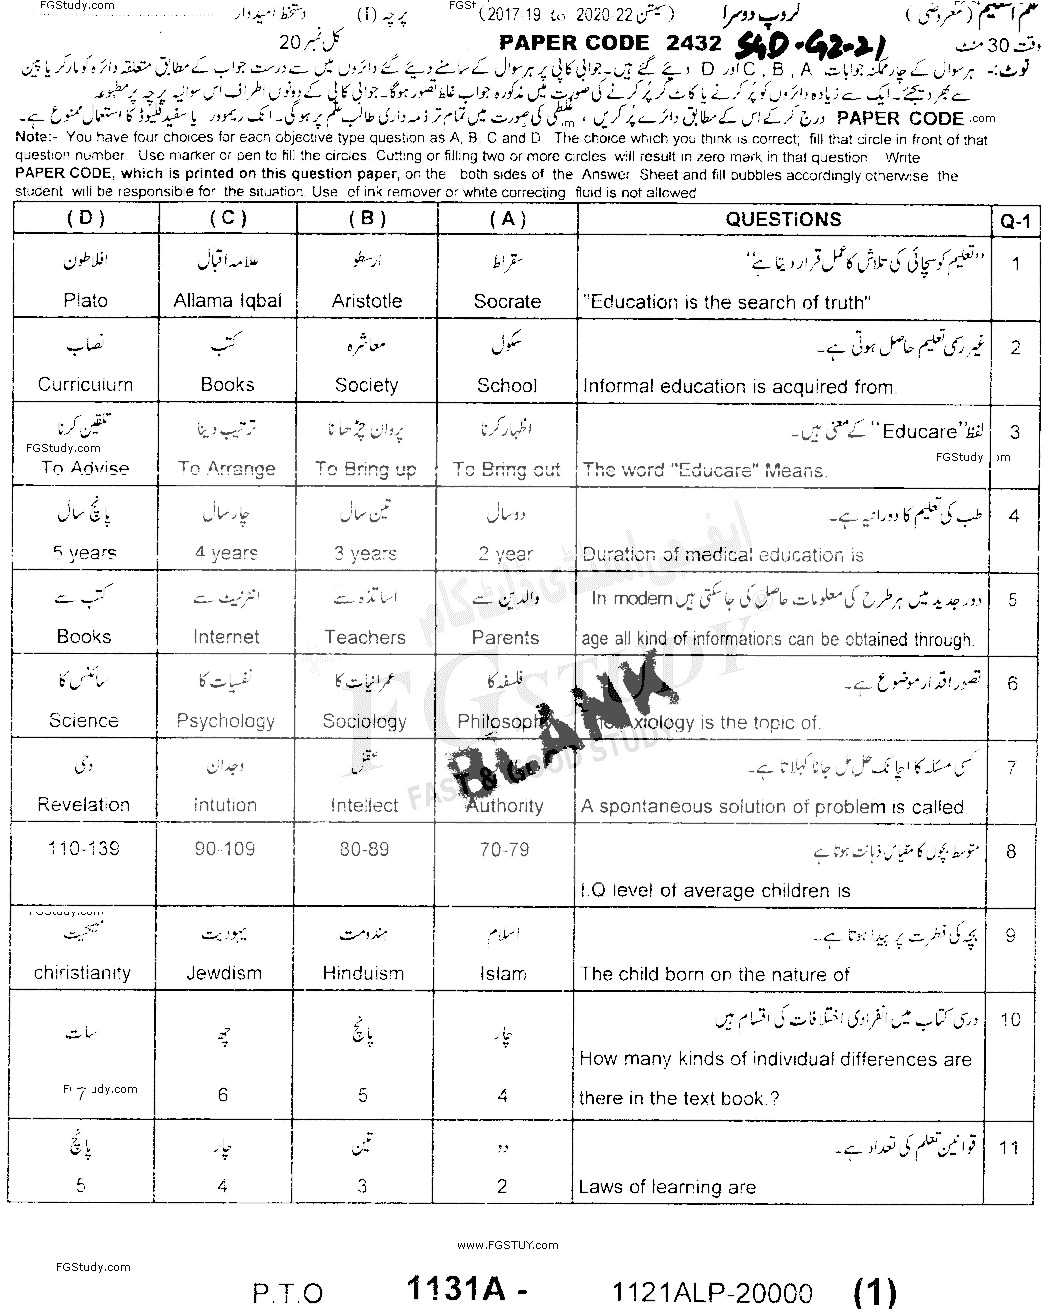 FGStudy.com
علم التعلیم (معروضی) گروپ دوسرا (سیشن 2017-19 to 2020-22) پرچہ (i) دستخط امیدوار
وقت 30 منٹ SGD-G2-21 PAPER CODE 2432 کل نمبر 20
نوٹ:- ہر سوال کے چار ممکنہ جوابات A , B , C اور D دیئے گئے ہیں۔ جوابی کاپی پر ہر سوال کے سامنے دیئے گئے دائروں میں سے درست جواب کے مطابق متعلقہ دائرہ کو مارکر یا پین
سے بھر دیجئے۔ ایک سے زیادہ دائروں کو پُر کرنے یا کاٹ کر پُر کرنے کی صورت میں مذکورہ جواب غلط تصور ہوگا۔ جوابی کاپی کے دونوں اطراف اس سوالیہ پرچہ پر مطبوعہ
PAPER CODE درج کر کے اس کے مطابق دائرے پُر کریں، غلطی کی صورت میں تمام تر ذمہ داری طالب علم پر ہوگی۔ انک ریموور یا سفید فلیوڈ کا استعمال ممنوع ہے۔
Note:- You have four choices for each objective type question as A, B, C and D. The choice which you think is correct; fill that circle in front of that
question number. Use marker or pen to fill the circles. Cutting or filling two or more circles will result in zero mark in that question. Write
PAPER CODE, which is printed on this question paper, on the both sides of the Answer Sheet and fill bubbles accordingly otherwise the
student will be responsible for the situation. Use of ink remover or white correcting fluid is not allowed
(D) (C) (B) (A) QUESTIONS Q-1
افلاطون علامہ اقبال ارسطو سقراط "تعلیم کو سچائی کی تلاش کا عمل قرار دیتا ہے" 1
Plato Allama Iqbal Aristotle Socrate "Education is the search of truth"
نصاب کتب معاشرہ سکول غیر رسمی تعلیم حاصل ہوتی ہے۔ 2
Curriculum Books Society School Informal education is acquired from
تلقین کرنا ترتیب دینا پروان چڑھانا اظہار کرنا لفظ "Educare" کے معنی ہیں۔ 3
FGStudy.com FGStudy
To Advise To Arrange To Bring up To Bring out The word "Educare" Means.
پانچ سال چار سال تین سال دو سال طب کی تعلیم کا دورانیہ ہے۔ 4
5 years 4 years 3 years 2 year Duration of medical education is
کتب سے انٹرنیٹ سے اساتذہ سے والدین سے دور جدید میں ہر طرح کی معلومات حاصل کی جاسکتی ہیں In modern 5
Books Internet Teachers Parents age all kind of informations can be obtained through.
سائنس کا نفسیات کا عمرانیات کا فلسفہ کا تصور اقدار موضوع ہے۔ 6
Science Psychology Sociology Philosophy The Axiology is the topic of.
BLANK
وحی وجدان عقل کسی مسئلہ کا اچانک حل مل جانا کہلاتا ہے۔ 7
Revelation Intution Intellect Authority A spontaneous solution of problem is called
110-139 90-109 80-89 70-79 متوسط بچوں کا مقیاس ذہانت ہوتا ہے 8
I.Q level of average children is
FGStudy.com
مسیحیت یہودیت ہندومت اسلام بچہ کی فطرت پر پیدا ہوتا ہے۔ 9
chiristianity Jewdism Hinduism Islam The child born on the nature of
سات چھ پانچ چار درسی کتاب میں انفرادی اختلافات کی اقسام ہیں 10
How many kinds of individual differences are
7 6 5 4 there in the text book.?
پانچ چار تین دو قوانین تعلم کی تعداد ہے۔ 11
5 4 3 2 Laws of learning are
www.FGSTUY.com
FGStudy.com
P.T.O 1131A - 1121ALP-20000 (1)